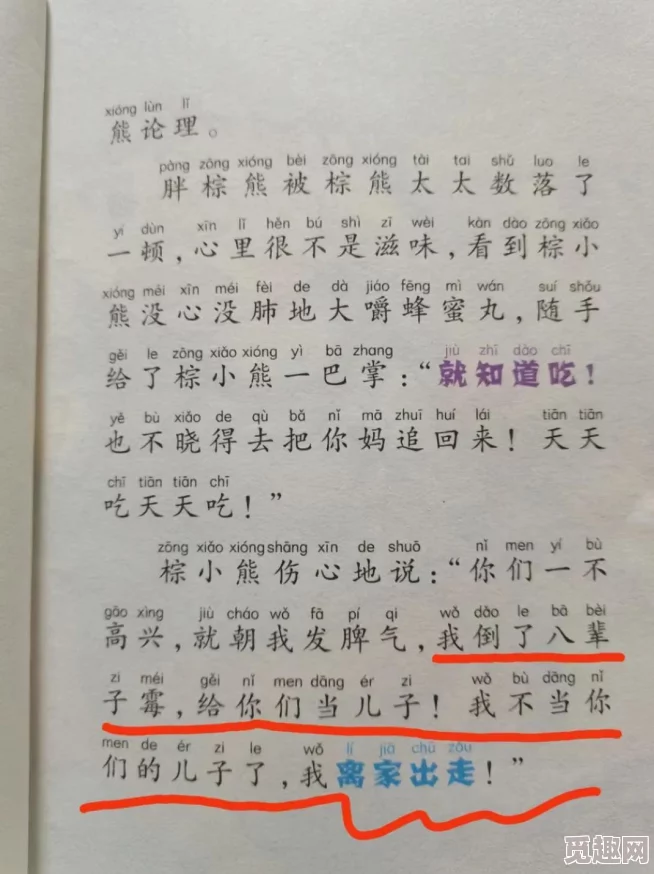 xióng lùn lǐ
熊论理。
pàng zōng xióng bèi zōng xióng tài tai shǔ luo le
胖棕熊被棕熊太太数落了
yí dùn xīn lǐ hěn bú shì zī wèi kàn dào zōng xiǎo
一顿，心里很不是滋味，看到棕小
xióng méi xīn méi fèi de dà jiáo fēng mì wán suí shǒu
熊没心没肺地大嚼蜂蜜丸，随手
gěi le zōng xiǎo xióng yì bā zhang jiù zhī dào chī
给了棕小熊一巴掌：“就知道吃！
yě bù xiǎo de qù bǎ nǐ mā zhuī huí lái tiān tiān
也不晓得去把你妈追回来！天天
chī tiān tiān chī
吃天天吃！”
zōng xiǎo xióng shāng xīn de shuō nǐ men yí bù
棕小熊伤心地说：“你们一不
gāo xìng jiù cháo wǒ fā pí qi wǒ dǎo le bā bèi
高兴，就朝我发脾气，我倒了八辈
zi méi gěi nǐ men dāng ér zi wǒ bù dāng nǐ
子霉，给你们当儿子！我不当你
men de ér zi le wǒ lí jiā chū zǒu
们的儿子了，我离家出走！”
觅趣网